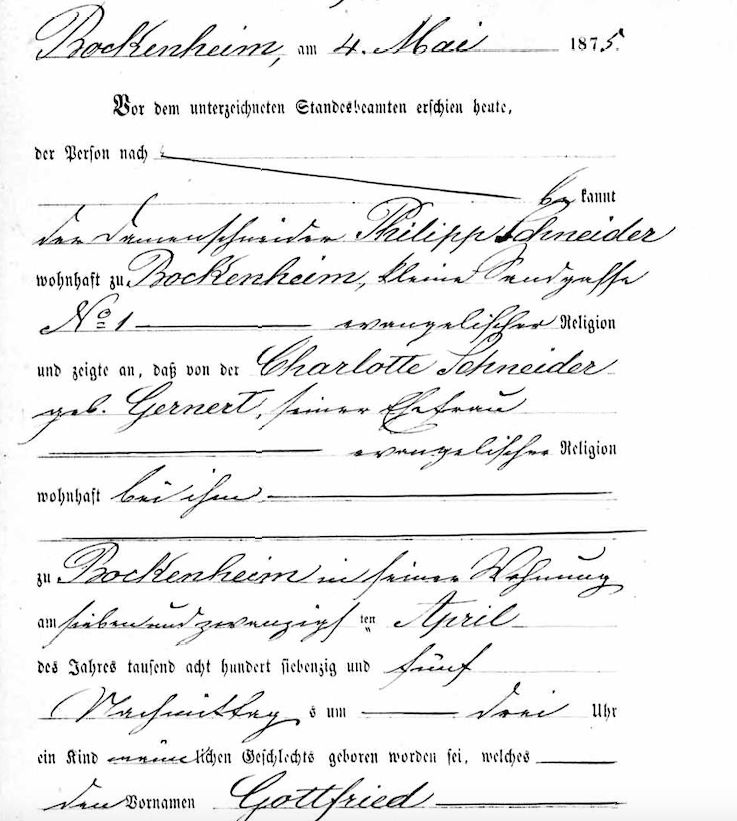 Bockenheim, am 4. Mai 1875.
Vor dem unterzeichneten Standesbeamten erschien heute,
der Person nach
be kannt
der Damenschneider Philipp Schneider
wohnhaft zu Bockenheim, kleine Sandgasse
No 1 evangelischer Religion
und zeigte an, daß von der Charlotte Schneider
geb. Gernert, seiner Ehefrau
evangelischer Religion
wohnhaft bei ihm
zu Bockenheim in seiner Wohnung
am sieben und zwanzigs ten April
des Jahres tausend acht hundert siebenzig und fünf
Nachmittag s um drei Uhr
ein Kind männlichen Geschlechts geboren worden sei, welches
den Vornamen Gottfried